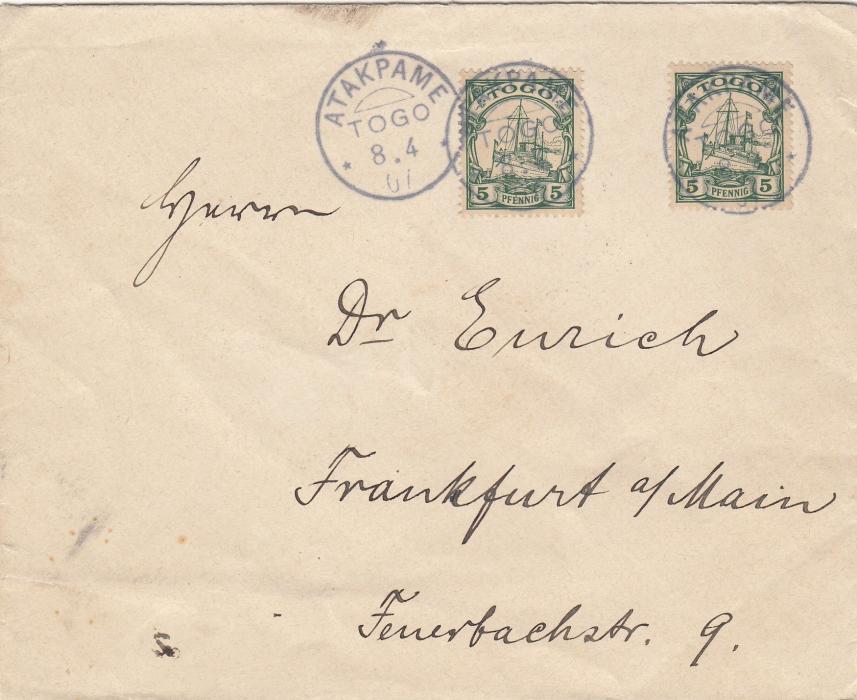 ATAKPAME
TOGO
8.4
07
TOGO
5 PFENNIG 5
TOGO
TOGO
5 PFENNIG 5
Herrn
Dr Eurich
Frankfurt a/Main
Feuerbachstr. 9.